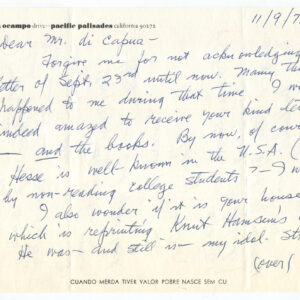 ocampo drive—pacific palisades california 90272
11/9/7
Dear Mr. di Capua—
Forgive me for not acknowledging
letter of Sept. 23rd until now. Many th
happened to me during that time. I w
indeed amazed to receive your kind le
— and the books. By now, of cour
Hesse is well known in the U.S.A. (
by non-reading college students — I w
I also wonder if it is your house
which is reprinting Knut Hamsuns
He was — and still is — my idol. St
(over)
CUANDO MERDA TIVER VALOR POBRE NASCE SEM CU